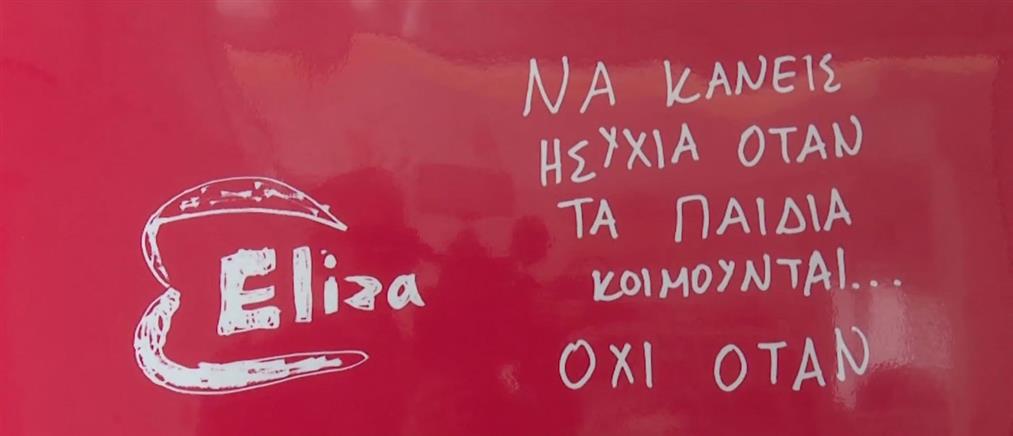 Eliza
ΝΑ ΚΑΝΕΙΣ
ΗΣΥΧΙΑ ΟΤΑΝ
ΤΑ ΠΑΙΔΙΑ
ΚΟΙΜΟΥΝΤΑΙ...
ΟΧΙ ΟΤΑΝ